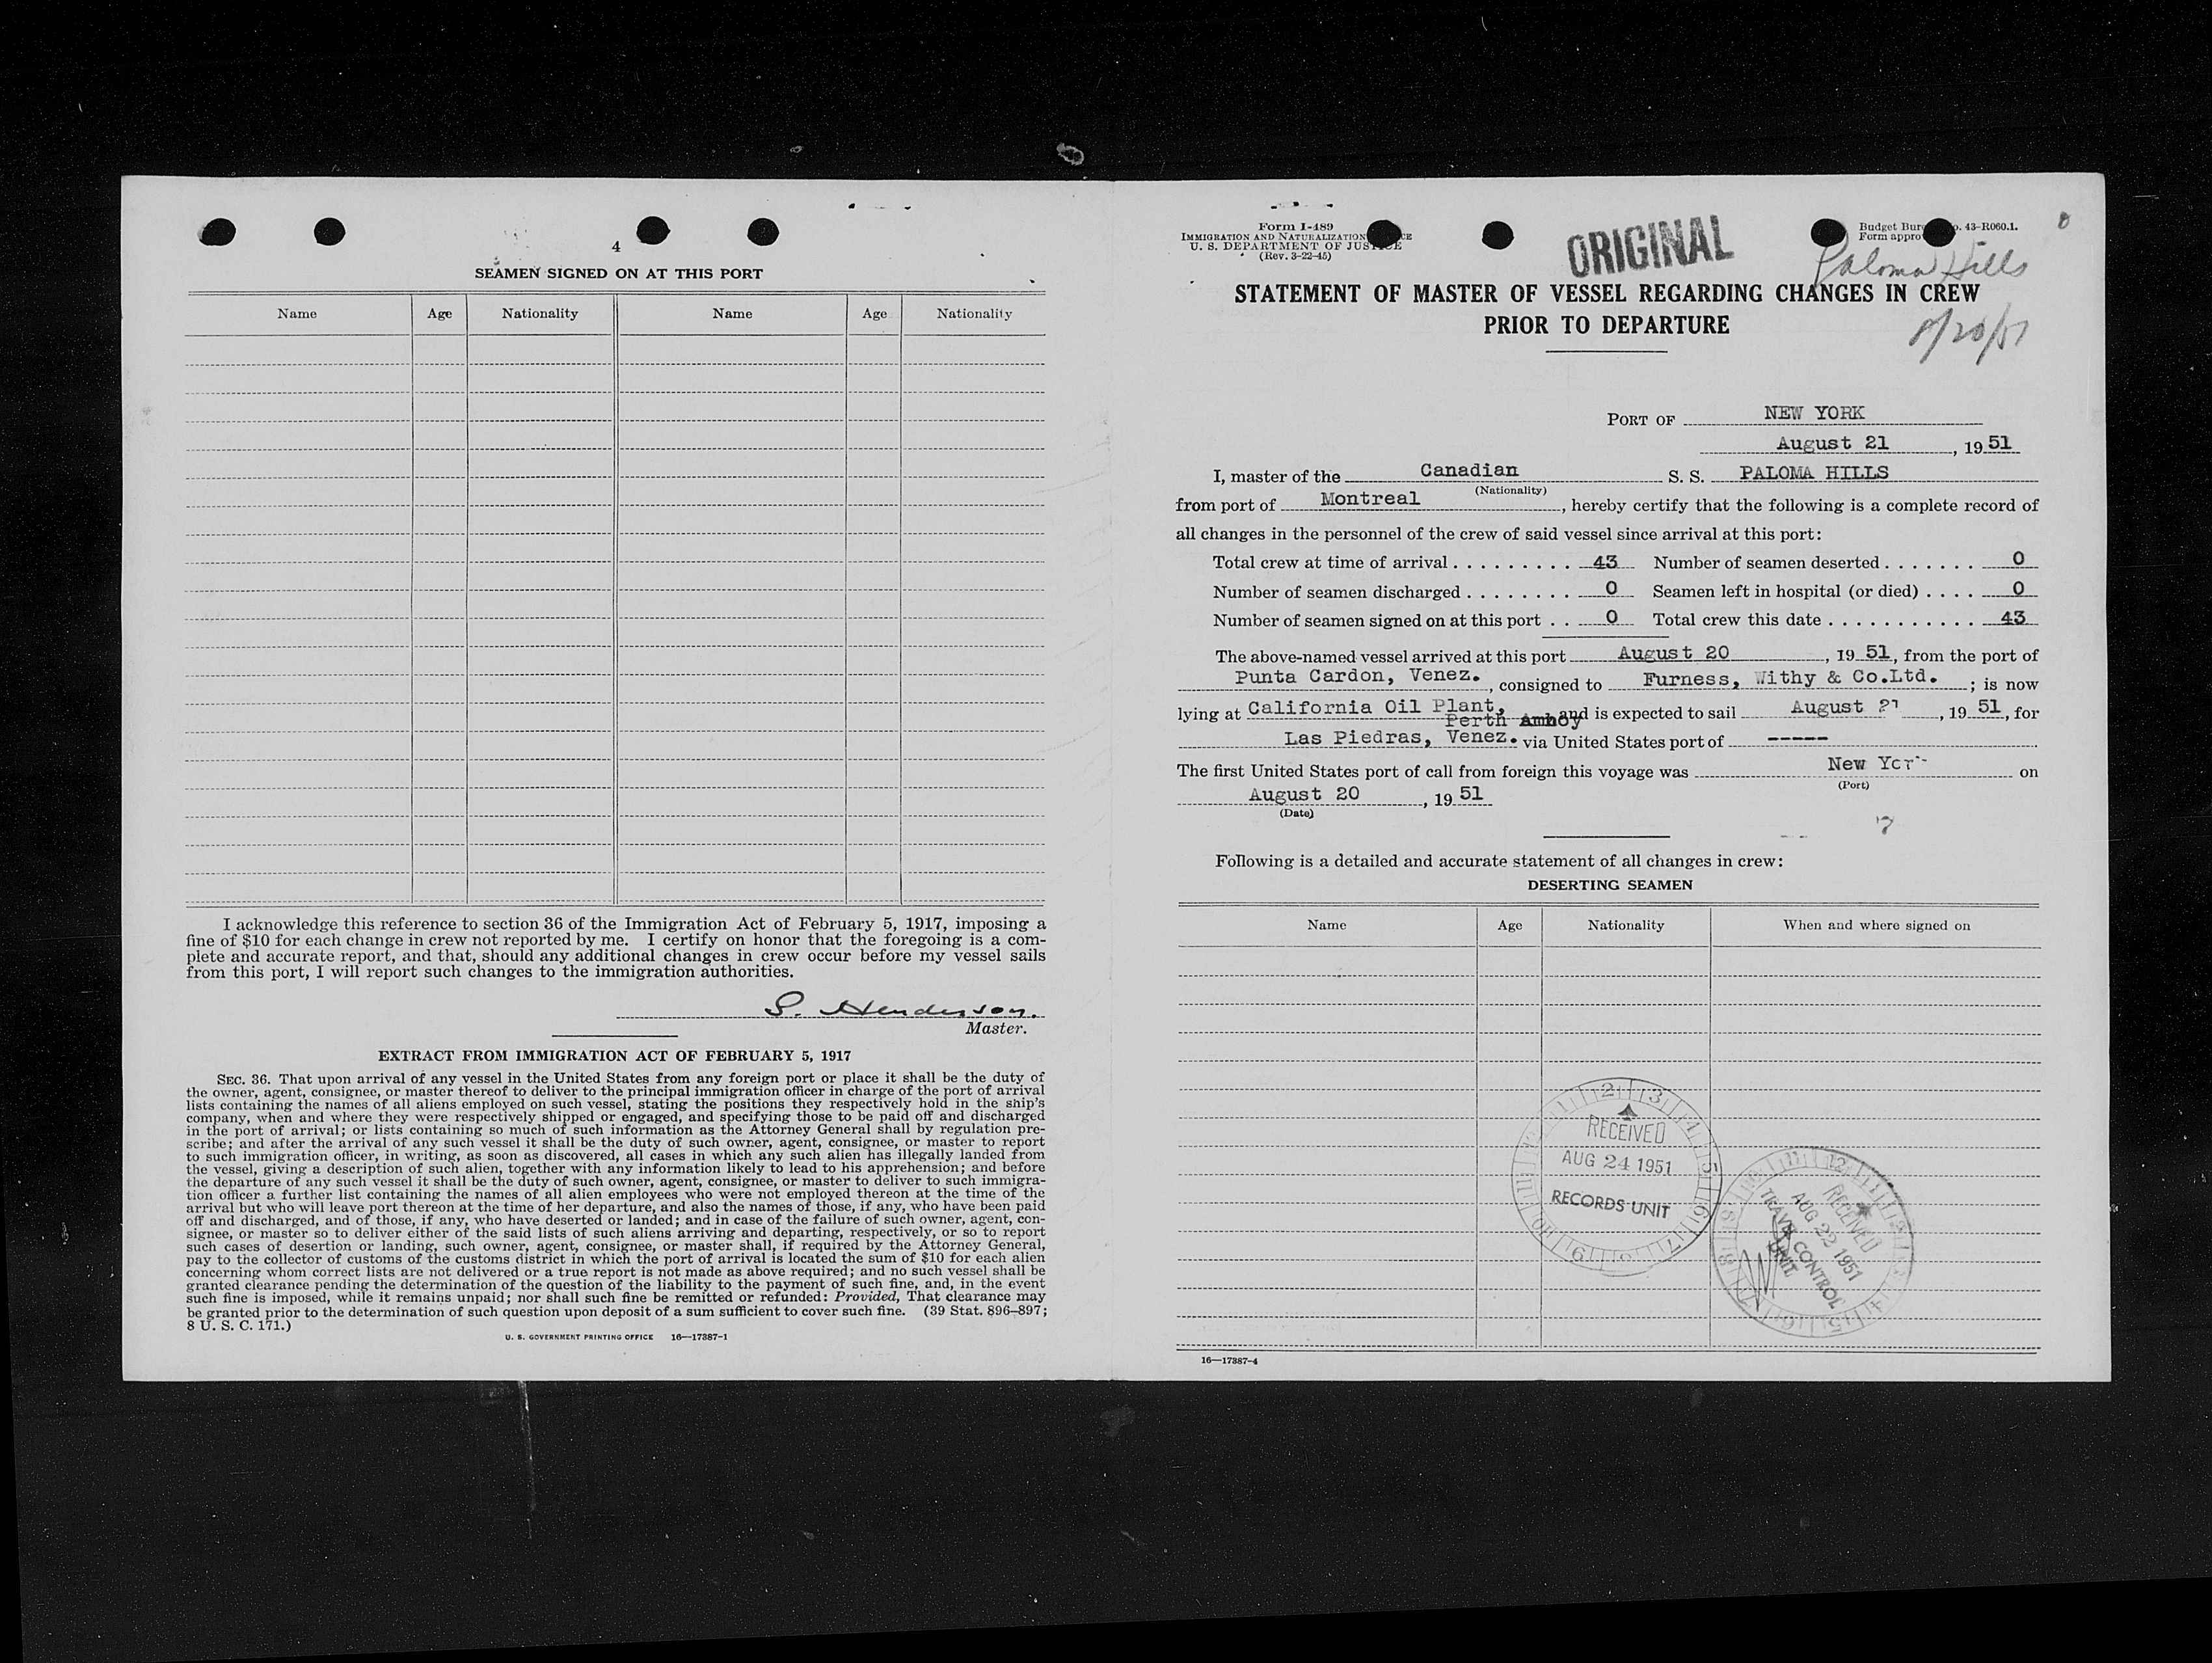 4
SEAMEN SIGNED ON AT THIS PORT
Name Age Nationality Name Age Nationality
I acknowledge this reference to section 36 of the Immigration Act of February 5, 1917, imposing a
fine of $10 for each change in crew not reported by me. I certify on honor that the foregoing is a com-
plete and accurate report, and that, should any additional changes in crew occur before my vessel sails
from this port, I will report such changes to the immigration authorities.
S. Henderson.
Master.
EXTRACT FROM IMMIGRATION ACT OF FEBRUARY 5, 1917
SEC. 36. That upon arrival of any vessel in the United States from any foreign port or place it shall be the duty of
the owner, agent, consignee, or master thereof to deliver to the principal immigration officer in charge of the port of arrival
lists containing the names of all aliens employed on such vessel, stating the positions they respectively hold in the ship's
company, when and where they were respectively shipped or engaged, and specifying those to be paid off and discharged
in the port of arrival; or lists containing so much of such information as the Attorney General shall by regulation pre-
scribe; and after the arrival of any such vessel it shall be the duty of such owner, agent, consignee, or master to report
to such immigration officer, in writing, as soon as discovered, all cases in which any such alien has illegally landed from
the vessel, giving a description of such alien, together with any information likely to lead to his apprehension; and before
the departure of any such vessel it shall be the duty of such owner, agent, consignee, or master to deliver to such immigra-
tion officer a further list containing the names of all alien employees who were not employed thereon at the time of the
arrival but who will leave port thereon at the time of her departure, and also the names of those, if any, who have been paid
off and discharged, and of those, if any, who have deserted or landed; and in case of the failure of such owner, agent, con-
signee, or master so to deliver either of the said lists of such aliens arriving and departing, respectively, or so to report
such cases of desertion or landing, such owner, agent, consignee, or master shall, if required by the Attorney General,
pay to the collector of customs of the customs district in which the port of arrival is located the sum of $10 for each alien
concerning whom correct lists are not delivered or a true report is not made as above required; and no such vessel shall be
granted clearance pending the determination of the question of the liability to the payment of such fine, and, in the event
such fine is imposed, while it remains unpaid; nor shall such fine be remitted or refunded: Provided, That clearance may
be granted prior to the determination of such question upon deposit of a sum sufficient to cover such fine. (39 Stat. 896-897;
8 U. S. C. 171.)
U. S. GOVERNMENT PRINTING OFFICE 16—17387-1
Form I-489
IMMIGRATION AND NATURALIZATION
U. S. DEPARTMENT OF JUSTICE
(Rev. 3-22-45)
ORIGINAL
Budget Bur o. 43-R060.1.
Form appro
Paloma Hills
STATEMENT OF MASTER OF VESSEL REGARDING CHANGES IN CREW
PRIOR TO DEPARTURE
8/20/51
PORT OF NEW YORK
August 21, 19 51
I, master of the Canadian S. S. PALOMA HILLS
(Nationality)
from port of Montreal, hereby certify that the following is a complete record of
all changes in the personnel of the crew of said vessel since arrival at this port:
Total crew at time of arrival . . . . . . . . . 43 Number of seamen deserted . . . . . . . 0
Number of seamen discharged . . . . . . . . 0 Seamen left in hospital (or died) . . . . 0
Number of seamen signed on at this port . . 0 Total crew this date . . . . . . . . . . . 43
The above-named vessel arrived at this port August 20, 19 51, from the port of
Punta Cardon, Venez., consigned to Furness, Withy & Co.Ltd.; is now
lying at California Oil Plant, Perth Amboy and is expected to sail August 21, 19 51, for
Las Piedras, Venez. via United States port of -----
The first United States port of call from foreign this voyage was New York on
(Port)
August 20, 19 51
(Date)
Following is a detailed and accurate statement of all changes in crew:
DESERTING SEAMEN
Name Age Nationality When and where signed on
RECEIVED
AUG 24 1951
RECORDS UNIT
RECEIVED
AUG 22 1951
TRAVEL CONTROL
UNIT
16—17387-4